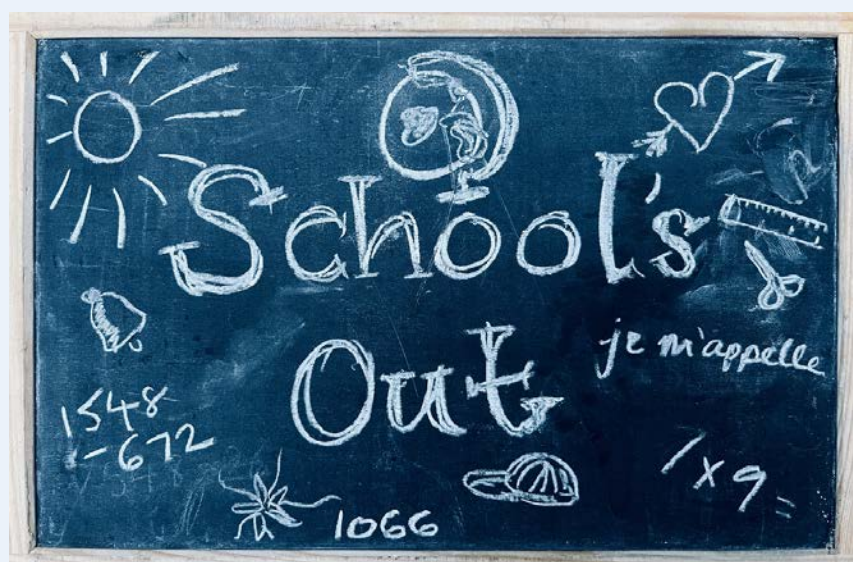 School's
Out
je m'appelle
1548
-672
1066
1x9=